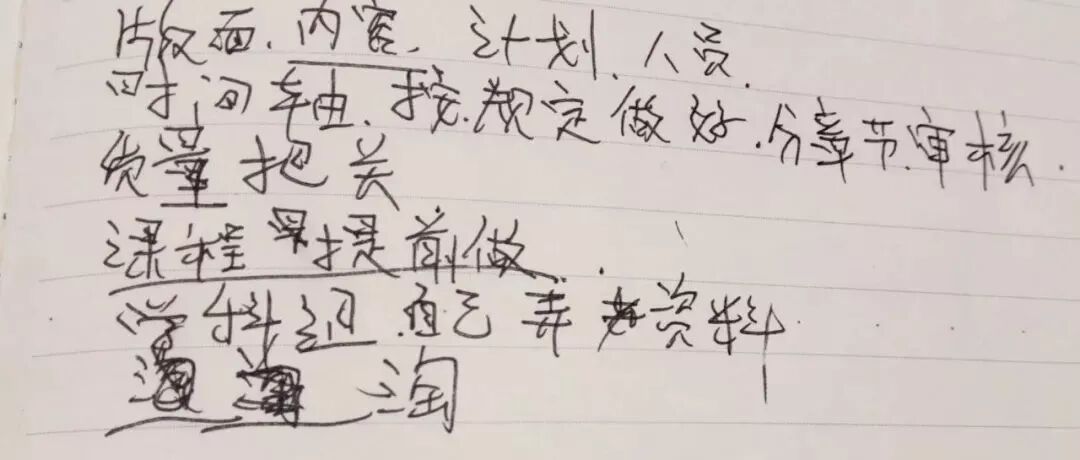 版面、内容、计划、人员、
时间轴、按规定做好、分章节审核.
质量把关
课程 提前做
学科组、自己弄 资料
淘